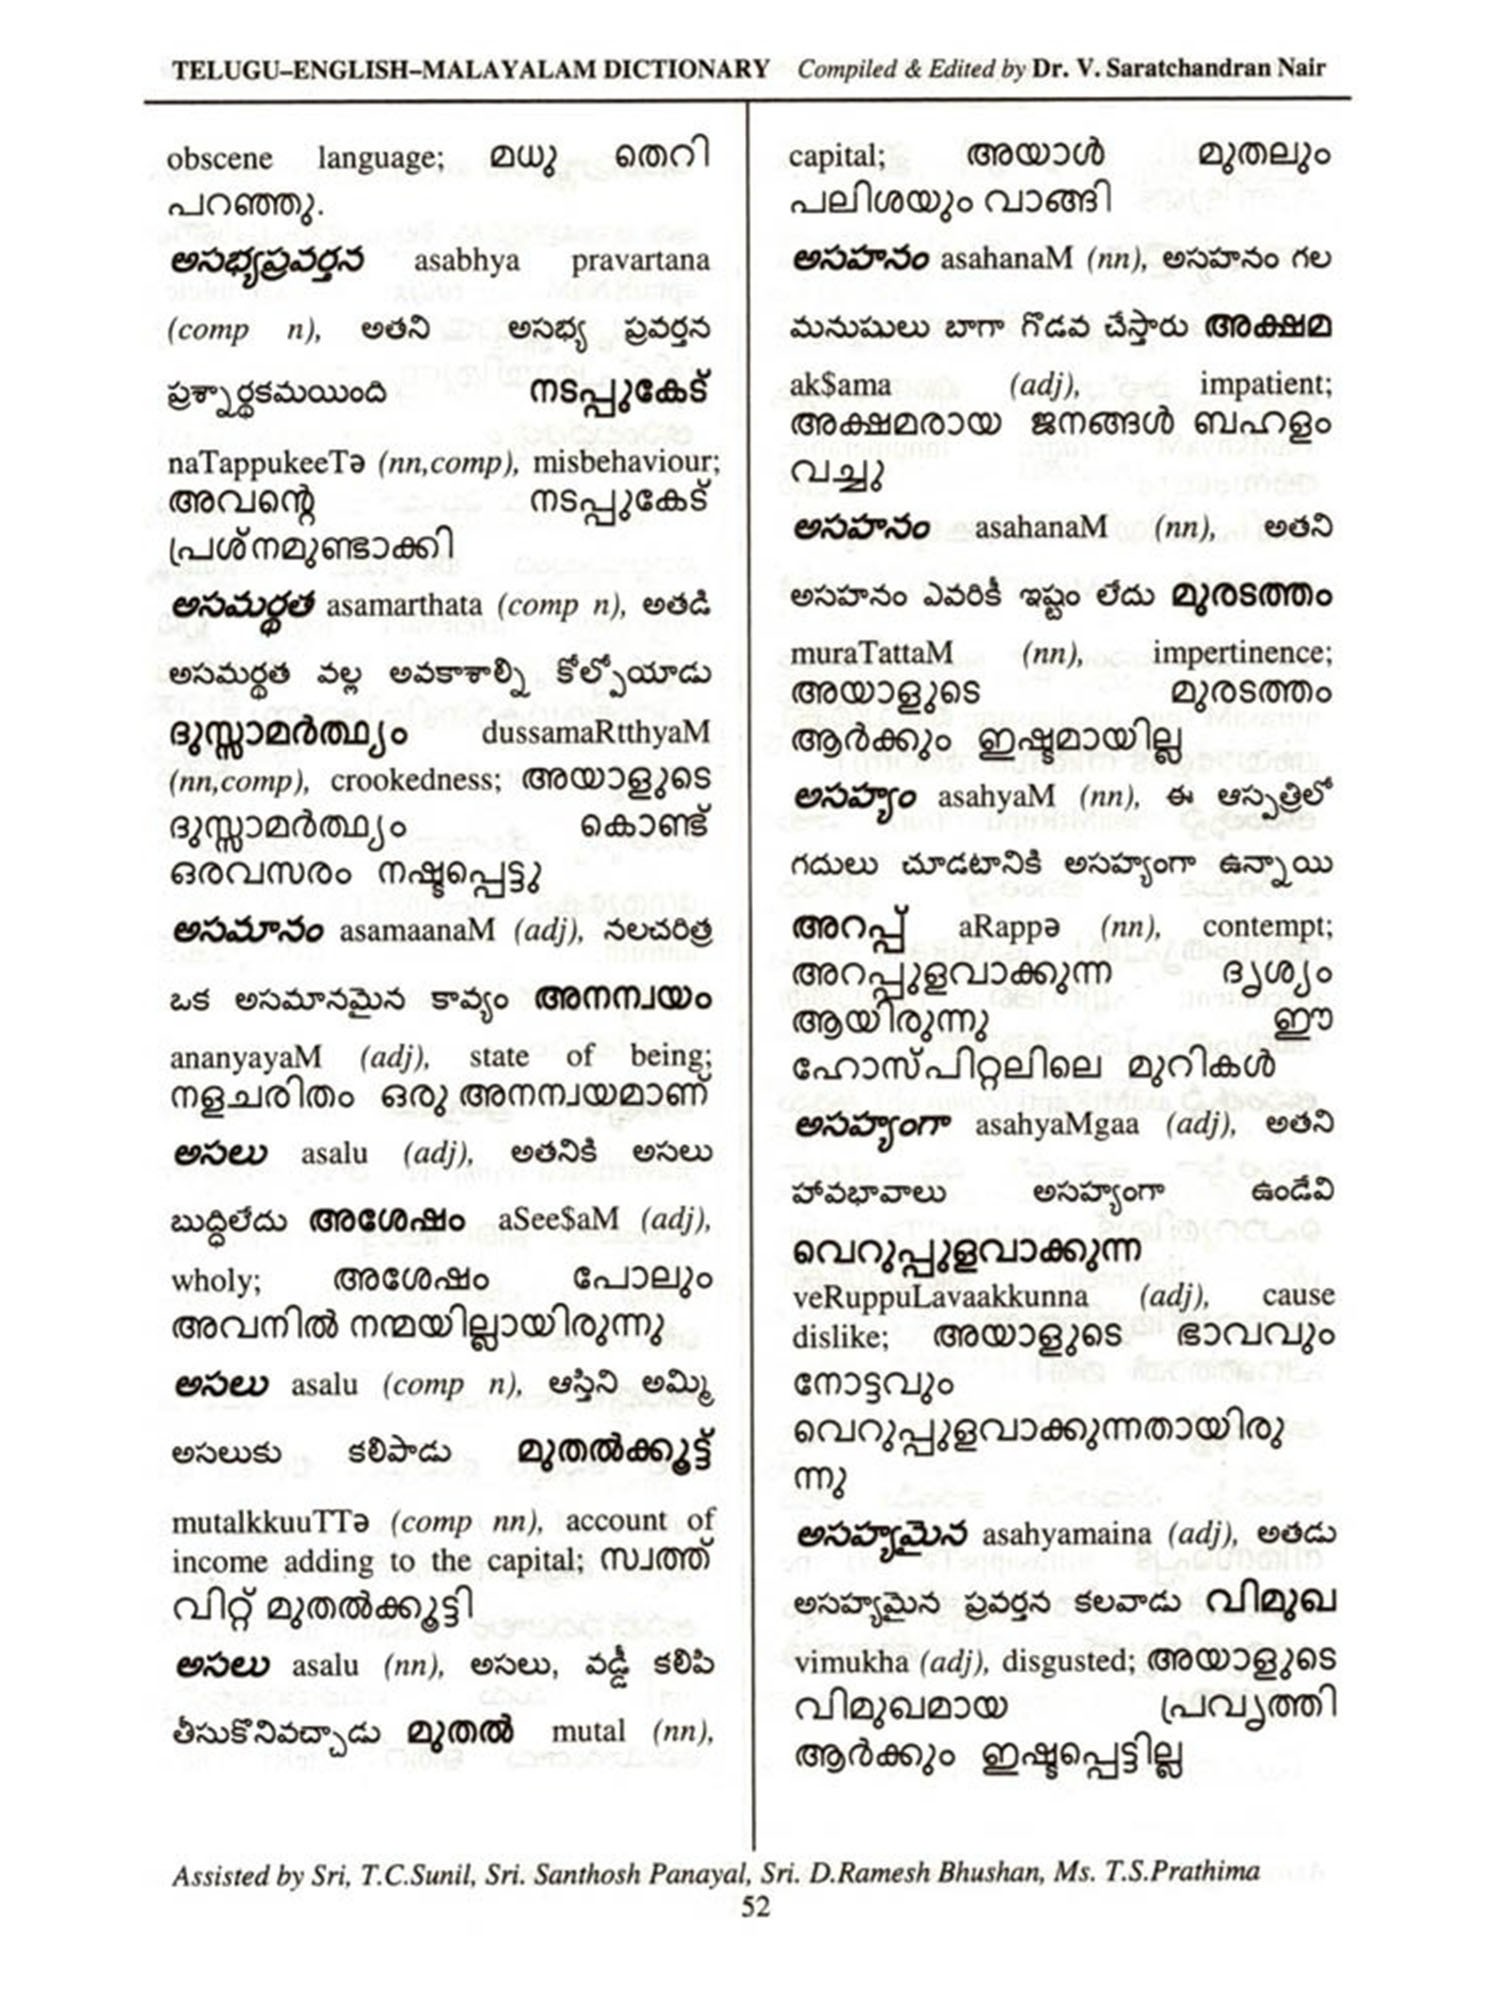 TELUGU–ENGLISH–MALAYALAM DICTIONARY Compiled & Edited by Dr. V. Saratchandran Nair
obscene language; മധു തെറി
പറഞ്ഞു.
అసభ్యప్రవర్తన asabhya pravartana
(comp n), అతని అసభ్య ప్రవర్తన
ప్రశ్నార్థకమయింది നടപ്പുകേട്
naTappukeeTə (nn,comp), misbehaviour;
അവന്റെ നടപ്പുകേട്
പ്രശ്നമുണ്ടാക്കി
అసమర్థత asamarthata (comp n), అతడి
అసమర్థత వల్ల అవకాశాల్ని కోల్పోయాడు
ദുസ്സാമർത്ഥ്യം dussamaRtthyaM
(nn,comp), crookedness; അയാളുടെ
ദുസ്സാമർത്ഥ്യം കൊണ്ട്
ഒരവസരം നഷ്ടപ്പെട്ടു
అసమానం asamaanaM (adj), నలచరిత్ర
ఒక అసమానమైన కావ్యం അനന്വയം
ananyayaM (adj), state of being;
നളചരിതം ഒരു അനന്വയമാണ്
అసలు asalu (adj), అతనికి అసలు
బుద్ధిలేదు അശേഷം aSee$aM (adj),
wholy; അശേഷം പോലും
അവനിൽ നന്മയില്ലായിരുന്നു
అసలు asalu (comp n), ఆస్తిని అమ్మి
అసలుకు కలిపాడు മുതൽക്കൂട്ട്
mutalkkuuTTə (comp nn), account of
income adding to the capital; സ്വത്ത്
വിറ്റ് മുതൽക്കൂട്ടി
అసలు asalu (nn), అసలు, వడ్డీ కలిపి
తీసుకొనివచ్చాడు മുതൽ mutal (nn),
capital; അയാൾ മുതലും
പലിശയും വാങ്ങി
అసహనం asahanaM (nn), అసహనం గల
మనుషులు బాగా గొడవ చేస్తారు അക്ഷമ
ak$ama (adj), impatient;
അക്ഷമരായ ജനങ്ങൾ ബഹളം
വച്ചു
అసహనం asahanaM (nn), అతని
అసహనం ఎవరికీ ఇష్టం లేదు മുരടത്തം
muraTattaM (nn), impertinence;
അയാളുടെ മുരടത്തം
ആർക്കും ഇഷ്ടമായില്ല
అసహ్యం asahyaM (nn), ఈ ఆస్పత్రిలో
గదులు చూడటానికి అసహ్యంగా ఉన్నాయి
അറപ്പ് aRappə (nn), contempt;
അറപ്പുളവാക്കുന്ന ദൃശ്യം
ആയിരുന്നു ഈ
ഹോസ്പിറ്റലിലെ മുറികൾ
అసహ్యంగా asahyaMgaa (adj), అతని
హావభావాలు అసహ్యంగా ఉండేవి
വെറുപ്പുളവാക്കുന്ന
veRuppuLavaakkunna (adj), cause
dislike; അയാളുടെ ഭാവവും
നോട്ടവും
വെറുപ്പുളവാക്കുന്നതായിരു
ന്നു
అసహ్యమైన asahyamaina (adj), అతడు
అసహ్యమైన ప్రవర్తన కలవాడు വിമുഖ
vimukha (adj), disgusted; അയാളുടെ
വിമുഖമായ പ്രവൃത്തി
ആർക്കും ഇഷ്ടപ്പെട്ടില്ല
Assisted by Sri, T.C.Sunil, Sri. Santhosh Panayal, Sri. D.Ramesh Bhushan, Ms. T.S.Prathima
52